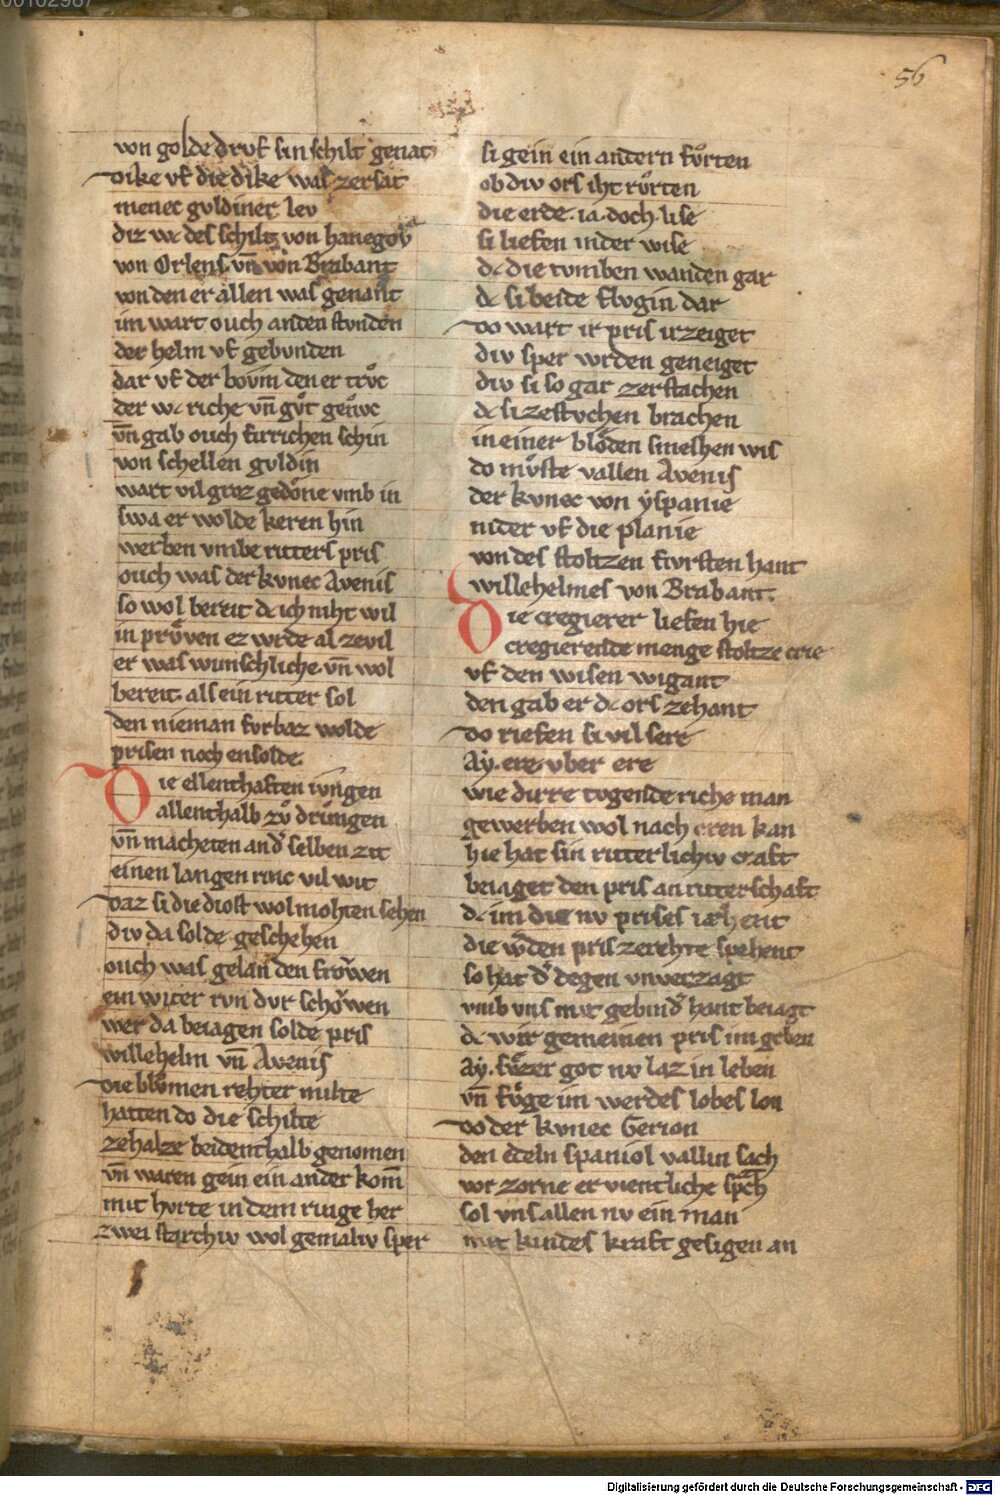 56
von golde druf sin schilt genat
dike vf die dike was zersat
menec guldiner leu
diz wc des schiltz von hanegoͮ
von Orlens vn̄ von Brabant
von den er allen was genant
im wart ouch an den stunden
der helm vf gebunden
dar vf der boͮm den er truͦc
der wc riche vn̄ guͦt genuͦc
vn̄ gab ouch fiurichen schin
von schellen guldin
wart vil groz gedoͤne vmb in
swa er wolde keren hin
werben vmbe ritters pris
ouch was der kunec Avenis
so wol bereit dc ich niht wil
in pruͤven ez wrde al zevil
er was wunschliche vn̄ wol
bereit als ein ritter sol
den nieman furbaz wolde
prisen noch ensolde.
Die ellenthaften iungen
allenthalb zuͦ drungen
vn̄ macheten an der selben zit
einen langen rinc vil wit
daz si die diost wol mohten sehen
div da solde geschehen
ouch was gelan den froͮwen
ein witer run dur schoͮwen
wer da beiagen solde pris
willehelm vn̄ Avenis
die bluͦmen rehter milte
hatten do die schilte
zehalze beidenthalb genomen
vn̄ waren gein ein ander kom̄
mit hurte in dem ringe her
zwei starchiv wol gemaliv sper
si gein ein andern fuͦrten
ob div ors iht ruͦrten
die erde. ia doch lise
si liefen in der wise
dc die tumben wanden gar
dc si beide flugin dar
do wart ir pris irzeiget
div sper wrden geneiget
div si so gar zerstachen
dc si zestuchen brachen
in einer bloͤden smeshen wis
do muͦste vallen Avenis
der kunec von yspanie
nider vf die planie
von des stoltzen fursten hant
willehelmes von Brabant.
Die cregierer liefen hie
cregierende menge stoltze crie
vf den wisen wigant
den gab er dc ors zehant
do riefen si vil sere
Ay. ere. vber ere
wie dirre tugende riche man
gewerben wol nach eren kan
hie hat sin ritterlichiv craft
beiaget den pris an ritterschaft
dc im die nv prises iæhent
die wͤden pris zerehte spehent
so hat der degen vnverzagt
vmb vns mit gebinder hant beiagt
dc wir gemeinen pris im geben
Ay. suͤzer got nv laz in leben
vn̄ fuͤge im werdes lobes lon
do der kunec Gerion
den edeln spaniol vallin sach
vor zorne er vientliche sp̄ch
sol vns allen nv ein man
mit kindes kraft gesigen an
Digitalisierung gefördert durch die Deutsche Forschungsgemeinschaft - DFG